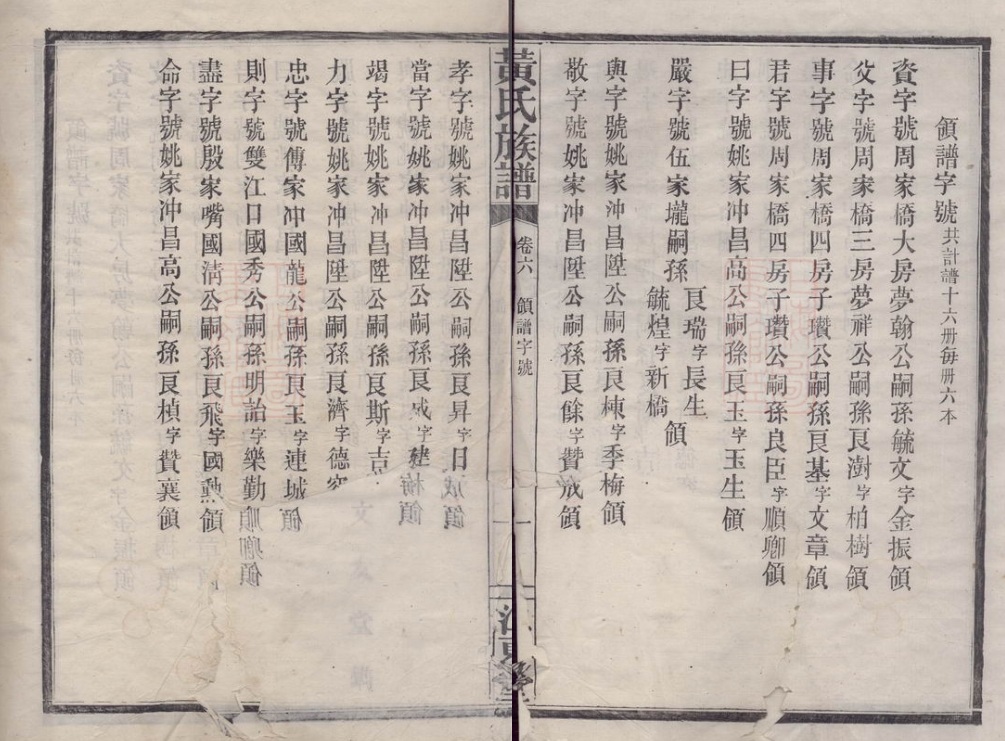 領譜字號共計譜十六册每册六本
資字號周家橋大房夢翰公嗣孫毓文字金振領
父字號周家橋三房夢祥公嗣孫良澍字柏樹領
事字號周家橋四房子瓚公嗣孫良基字文章領
君字號周家橋四房子瓚公嗣孫良臣字順卿領
曰字號姚家冲昌高公嗣孫良玉字玉生領
嚴字號伍家壠嗣孫良瑞字長生毓煌字新橋領
與字號姚家冲昌陞公嗣孫良棟字季梅領
敬字號姚家冲昌陞公嗣孫良餘字贊成領
黃氏族譜
卷六
領譜字號
一
孝字號姚家冲昌陞公嗣孫良昇字日成領
當字號姚家冲昌陞公嗣孫良成字建梅領
竭字號姚家冲昌陞公嗣孫良斯字吉
力字號姚家冲昌陞公嗣孫良濟字德
忠字號傅家冲國龍公嗣孫良玉字連城領
則字號雙江口國秀公嗣孫明詒字樂勤順卿領
盡字號殷家嘴國清公嗣孫良飛字國勲領
命字號姚家冲昌高公嗣孫良楨字贊襄領